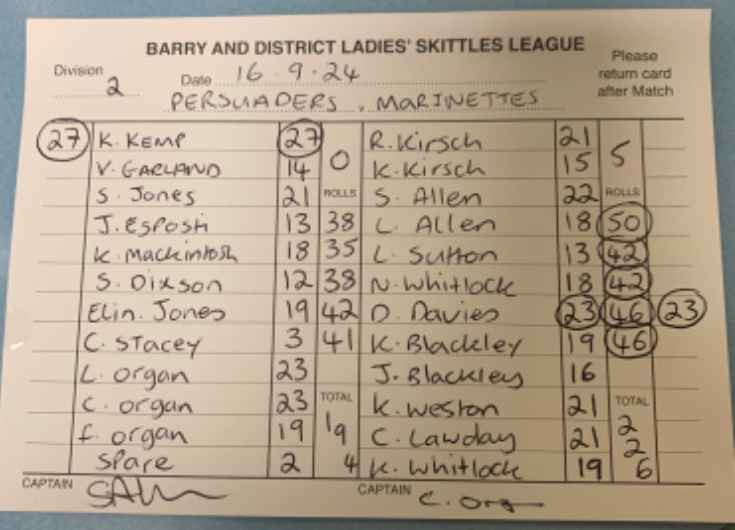 BARRY AND DISTRICT LADIES' SKITTLES LEAGUE
Division 2 Date 16.9.24 Please return card after Match
PERSUADERS . MARINETTES
27 K. KEMP 27 0 R. Kirsch 21 5
V. GARLAND 14 K. Kirsch 15
S. Jones 21 ROLLS S. Allen 22 ROLLS
J. Esposti 13 38 L. Allen 18 50
K. Mackintosh 18 35 L. Sutton 13 42
S. Dixson 12 38 N. Whitlock 18 42
Elin. Jones 19 42 D. Davies 23 46 23
C. Stacey 3 41 K. Blackley 19 46
L. organ 23 J. Blackley 16
C. organ 23 TOTAL K. Weston 21 TOTAL
f. organ 19 19 C. Lawday 21 2 2
Spare 2 4 K. Whitlock 19 6
CAPTAIN CAPTAIN C. Org